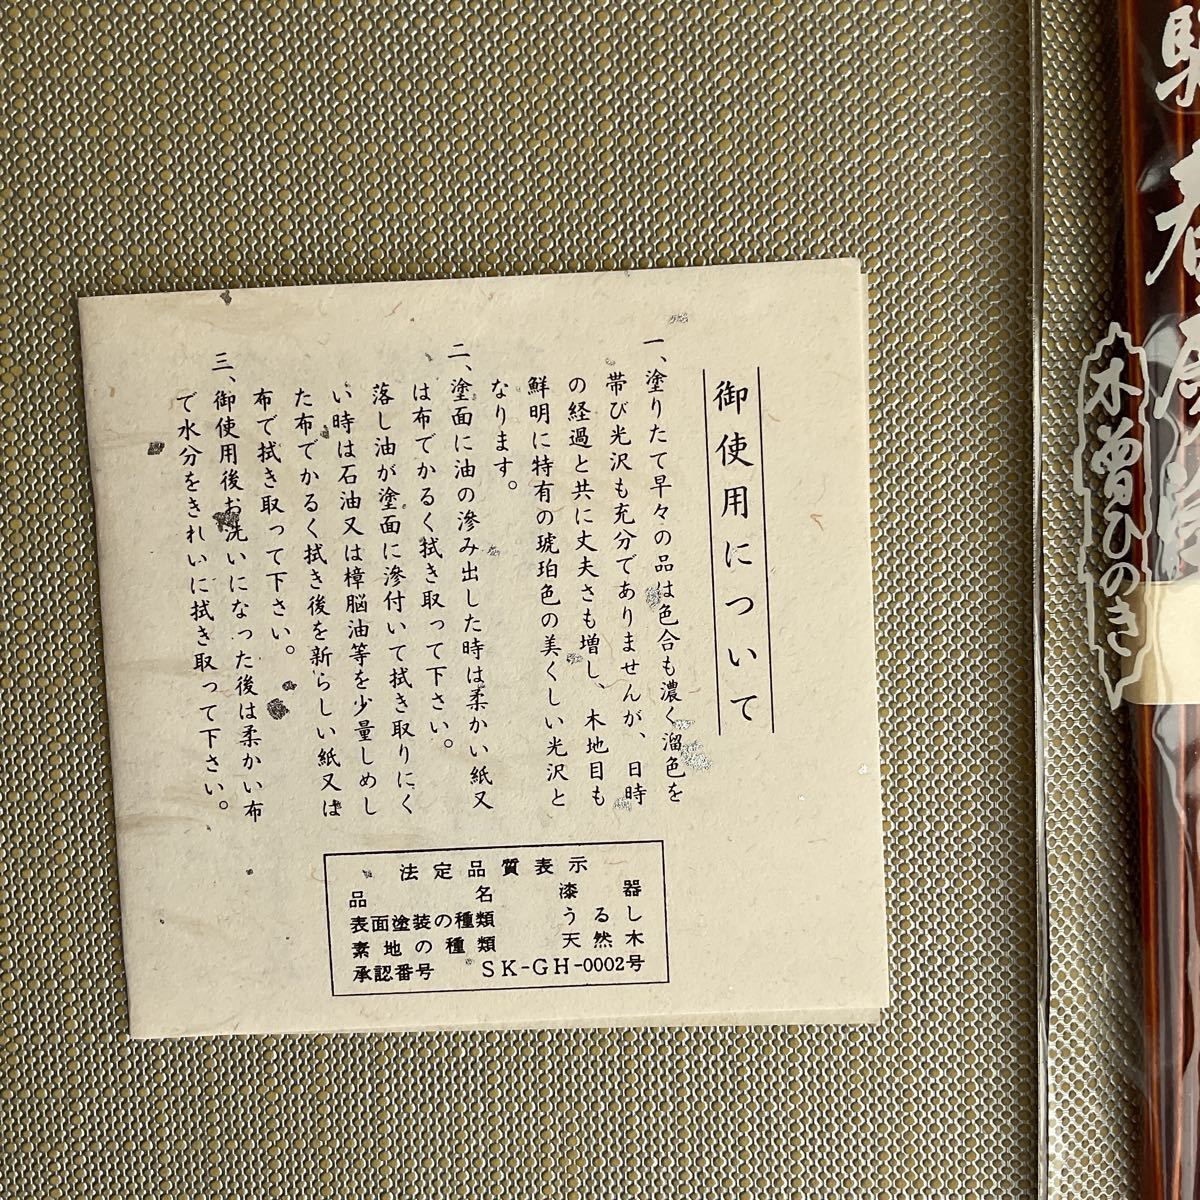 御使用について
一、塗りたて早々の品は色合も濃く溜色を
帯び光沢も充分でありませんが、日時
の経過と共に丈夫さも増し、木地目も
鮮明に特有の琥珀色の美くしい光沢と
なります。
二、塗面に油の滲み出した時は柔かい紙又
は布でかるく拭き取って下さい。
落し油が塗面に滲付いて拭き取りにく
い時は石油又は樟脳油等を少量しめし
た布でかるく拭き後を新らしい紙又は
布で拭き取って下さい。
三、御使用後お洗いになった後は柔かい布
で水分をきれいに拭き取って下さい。
法定品質表示
品名 漆器
表面塗装の種類 うるし
素地の種類 天然木
承認番号 SK-GH-0002号
春慶塗
木曽ひのき